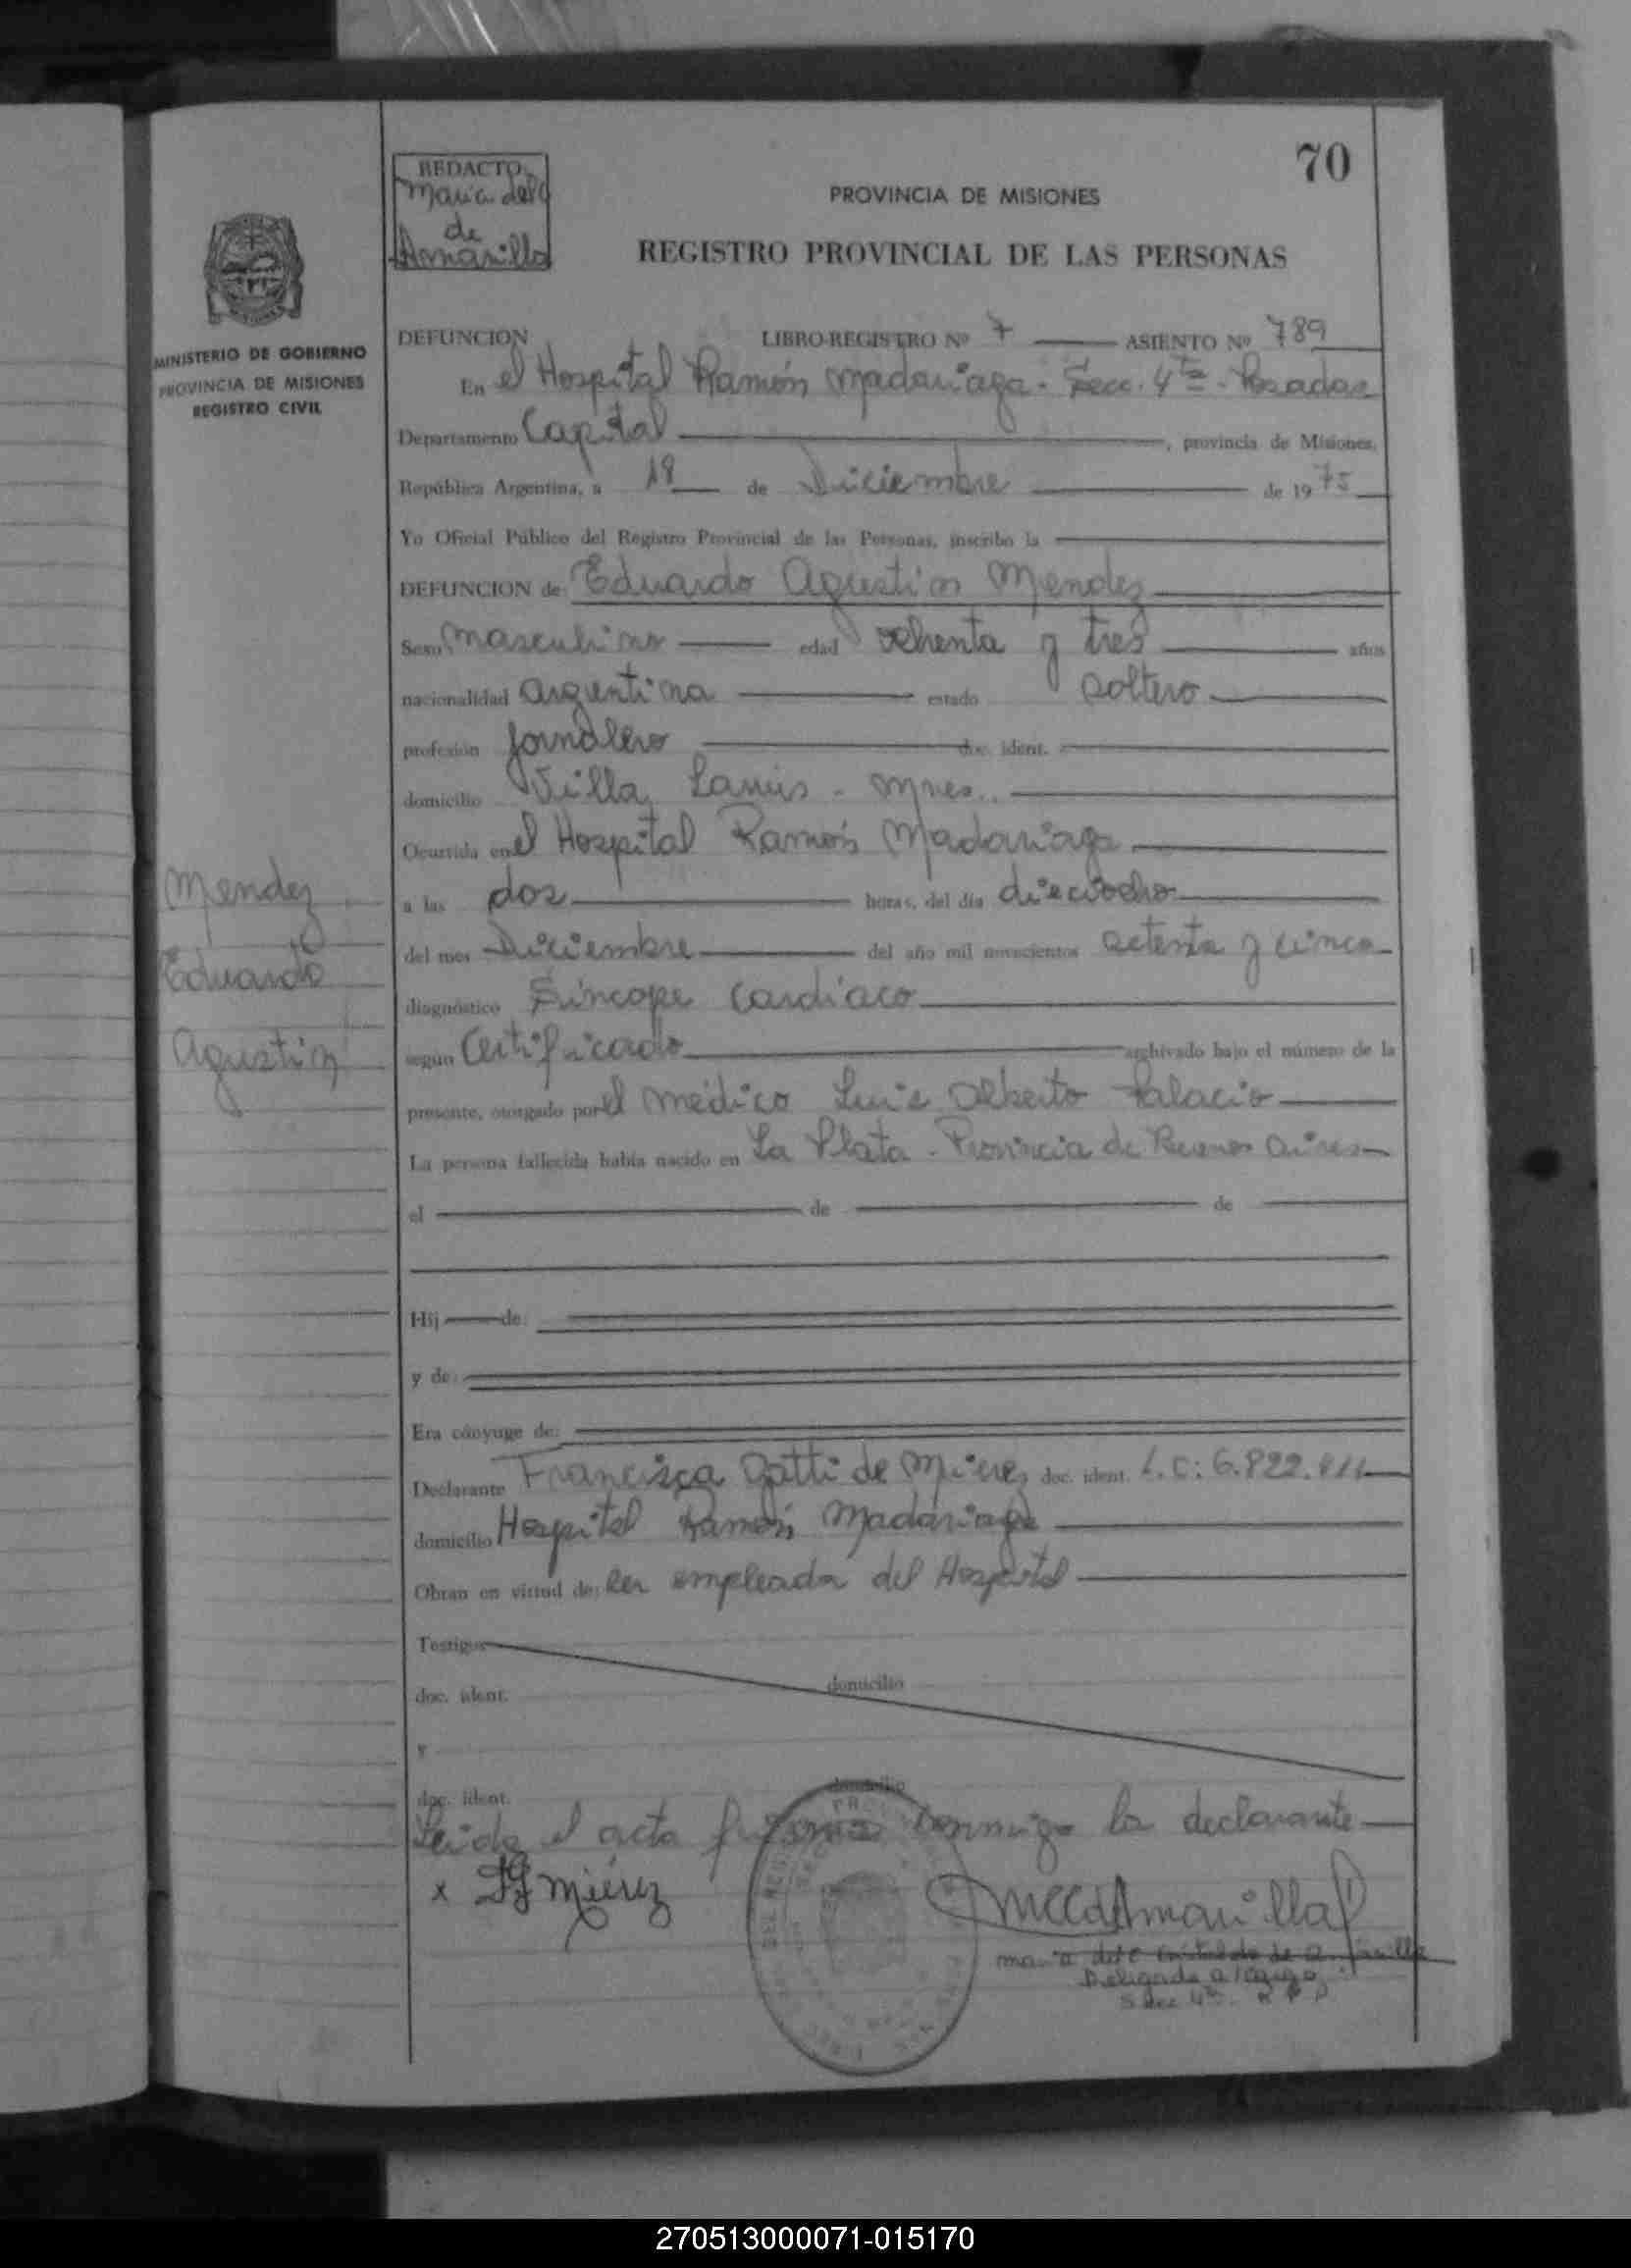 70
REDACTO
Maria del C
de
Amarilla
PROVINCIA DE MISIONES
REGISTRO PROVINCIAL DE LAS PERSONAS
MINISTERIO DE GOBIERNO
PROVINCIA DE MISIONES
REGISTRO CIVIL
DEFUNCION LIBRO-REGISTRO Nº 7 ASIENTO Nº 789
En el Hospital Ramón Madariaga - Secc. 4ta - Posadas
Departamento Capital, provincia de Misiones,
República Argentina, a 18 de Diciembre de 1975
Yo Oficial Público del Registro Provincial de las Personas, inscribo la
DEFUNCION de: Eduardo Agustin Mendez
Sexo Masculino edad ochenta y tres años
nacionalidad argentina estado soltero
profesión Jornalero doc. ident.
domicilio Villa Lanús - Mnes.
Ocurrida en el Hospital Ramón Madariaga
a las dos horas, del día dieciocho
del mes Diciembre del año mil novecientos setenta y cinco
diagnóstico Síncope Cardíaco
según Certificado archivado bajo el número de la
presente, otorgado por el médico Luis Alberto Palacio
La persona fallecida había nacido en La Plata - Provincia de Buenos Aires
el de de
Hij de:
y de:
Era cónyuge de:
Declarante Francisca Gatti de Mierez doc. ident. L.C: 6.822.811
domicilio Hospital Ramón Madariaga
Obran en virtud de: ser empleada del Hospital
Testigos
doc. ident. domicilio
y
doc. ident. domicilio
Leida el acta firma conmigo la declarante
x Mierez
Mendez
Eduardo
Agustin
Delegada a/cargo
Secc 4ta. R P P
270513000071-015170